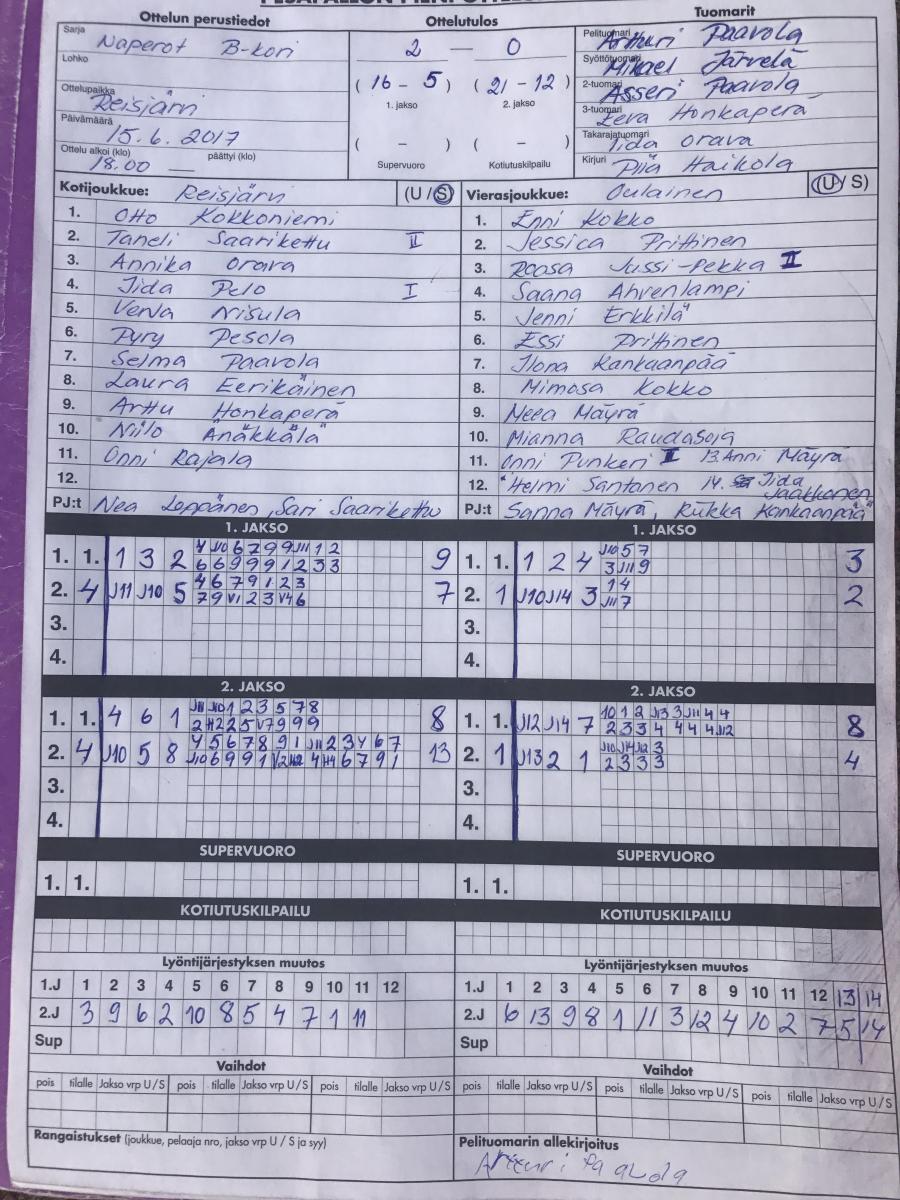 Ottelun perustiedot
Ottelutulos
Tuomarit
Sarja Naperot B-kori
Lohko
Ottelupaikka Reisjärvi
Päivämäärä 15.6.2017
Ottelu alkoi (klo) 18.00 päättyi (klo) —
2 — 0
(16 - 5) (21 - 12)
1. jakso 2. jakso
( - ) ( - )
Supervuoro Kotiutuskilpailu
Pelituomari Artturi Paavola
Syöttötuomari Mikael Järvelä
2-tuomari Asseri Paavola
3-tuomari Eeva Honkaperä
Takarajatuomari Iida Orava
Kirjuri Piia Haikola
Kotijoukkue: Reisjärvi (U / S)
1. Otto Kokkoniemi
2. Taneli Saarikettu II
3. Annika Orava
4. Iida Pelo I
5. Verva Nisula
6. Pyry Pesola
7. Selma Paavola
8. Laura Eerikäinen
9. Arttu Honkaperä
10. Niilo Änäkkälä
11. Onni Rajala
12.
PJ:t Nea Leppänen, Sari Saarikettu
Vierasjoukkue: Oulainen (U / S)
1. Enni Kokko
2. Jessica Prittinen
3. Roosa Jussi-Pekka II
4. Saana Ahvenlampi
5. Jenni Erkkilä
6. Essi Prittinen
7. Ilona Kankaanpää
8. Mimosa Kokko
9. Neea Mäyrä
10. Mianna Raudasoja
11. Onni Punkeri I 13. Anni Mäyrä
12. Helmi Santanen 14. Iida Jaakkonen
PJ:t Sanna Mäyrä, Riikka Kankaanpää
1. JAKSO
1. 1. 1 3 2
4 J10 6 7 9 9 J11 1 2
6 6 9 9 9 1 2 3 3
9
2. 4 J11 J10 5
4 6 7 9 1 2 3
7 9 V1 2 3 V4 6
7
3.
4.
1. JAKSO
1. 1. 1 2 4
J10 5 7
3 J11 9
3
2. 1 J10 J14 3
1 4
J11 7
2
3.
4.
2. JAKSO
1. 1. 4 6 1
J11 J10 1 2 3 5 7 8
2 H2 2 5 V7 9 9 9
8
2. 4 J10 5 8
4 5 6 7 8 9 1 J11 2 3 4 6 7
J10 6 9 9 1 V2 H2 4 H4 6 7 9 1
13
3.
4.
2. JAKSO
1. 1. J12 J14 7
10 1 2 J13 3 J11 4 4
2 3 3 4 4 4 4 J12
8
2. 1 J13 2 1
J10 J14 J12 3
2 3 3 3
4
3.
4.
SUPERVUORO
1. 1.
SUPERVUORO
1. 1.
KOTIUTUSKILPAILU
KOTIUTUSKILPAILU
Lyöntijärjestyksen muutos
1.J 1 2 3 4 5 6 7 8 9 10 11 12
2.J 3 9 6 2 10 8 5 4 7 1 11
Sup
Lyöntijärjestyksen muutos
1.J 1 2 3 4 5 6 7 8 9 10 11 12 13 14
2.J 6 13 9 8 1 11 3 12 4 10 2 7 5 14
Sup
Vaihdot
pois tilalle Jakso vrp U / S pois tilalle Jakso vrp U / S pois tilalle Jakso vrp U / S
Vaihdot
pois tilalle Jakso vrp U / S pois tilalle Jakso vrp U / S pois tilalle Jakso vrp U / S
Rangaistukset (joukkue, pelaaja nro, jakso vrp U / S ja syy)
Pelituomarin allekirjoitus
Artturi Paavola